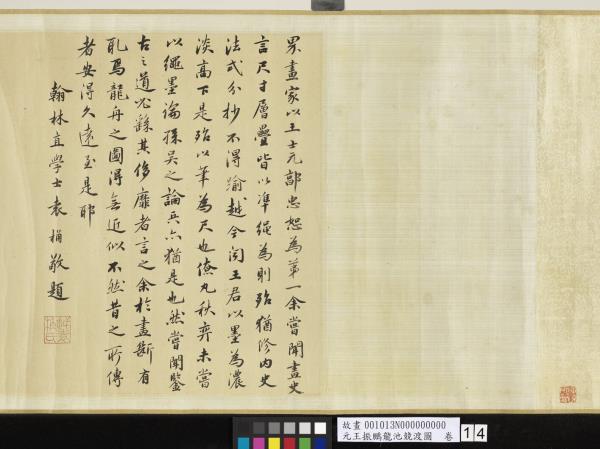 界畫家以王士元郭忠恕為第一余嘗聞畫史
言尺寸層疊皆以準繩為則殆猶修內史
法式分抄不得踰越今聞王君以墨為濃
淡高下是殆以筆為尺也僚丸秋弈未嘗
以繩墨論孫吳之論兵亦猶是也然嘗聞鑒
古之道必繇其侈靡者言之余於畫斷有
取焉龍舟之圖得無近似不然昔之所傳
者安得久遠至是耶
翰林直學士袁桷敬題
故畫 001013N000000000
元王振鵬龍池競渡圖 卷
14